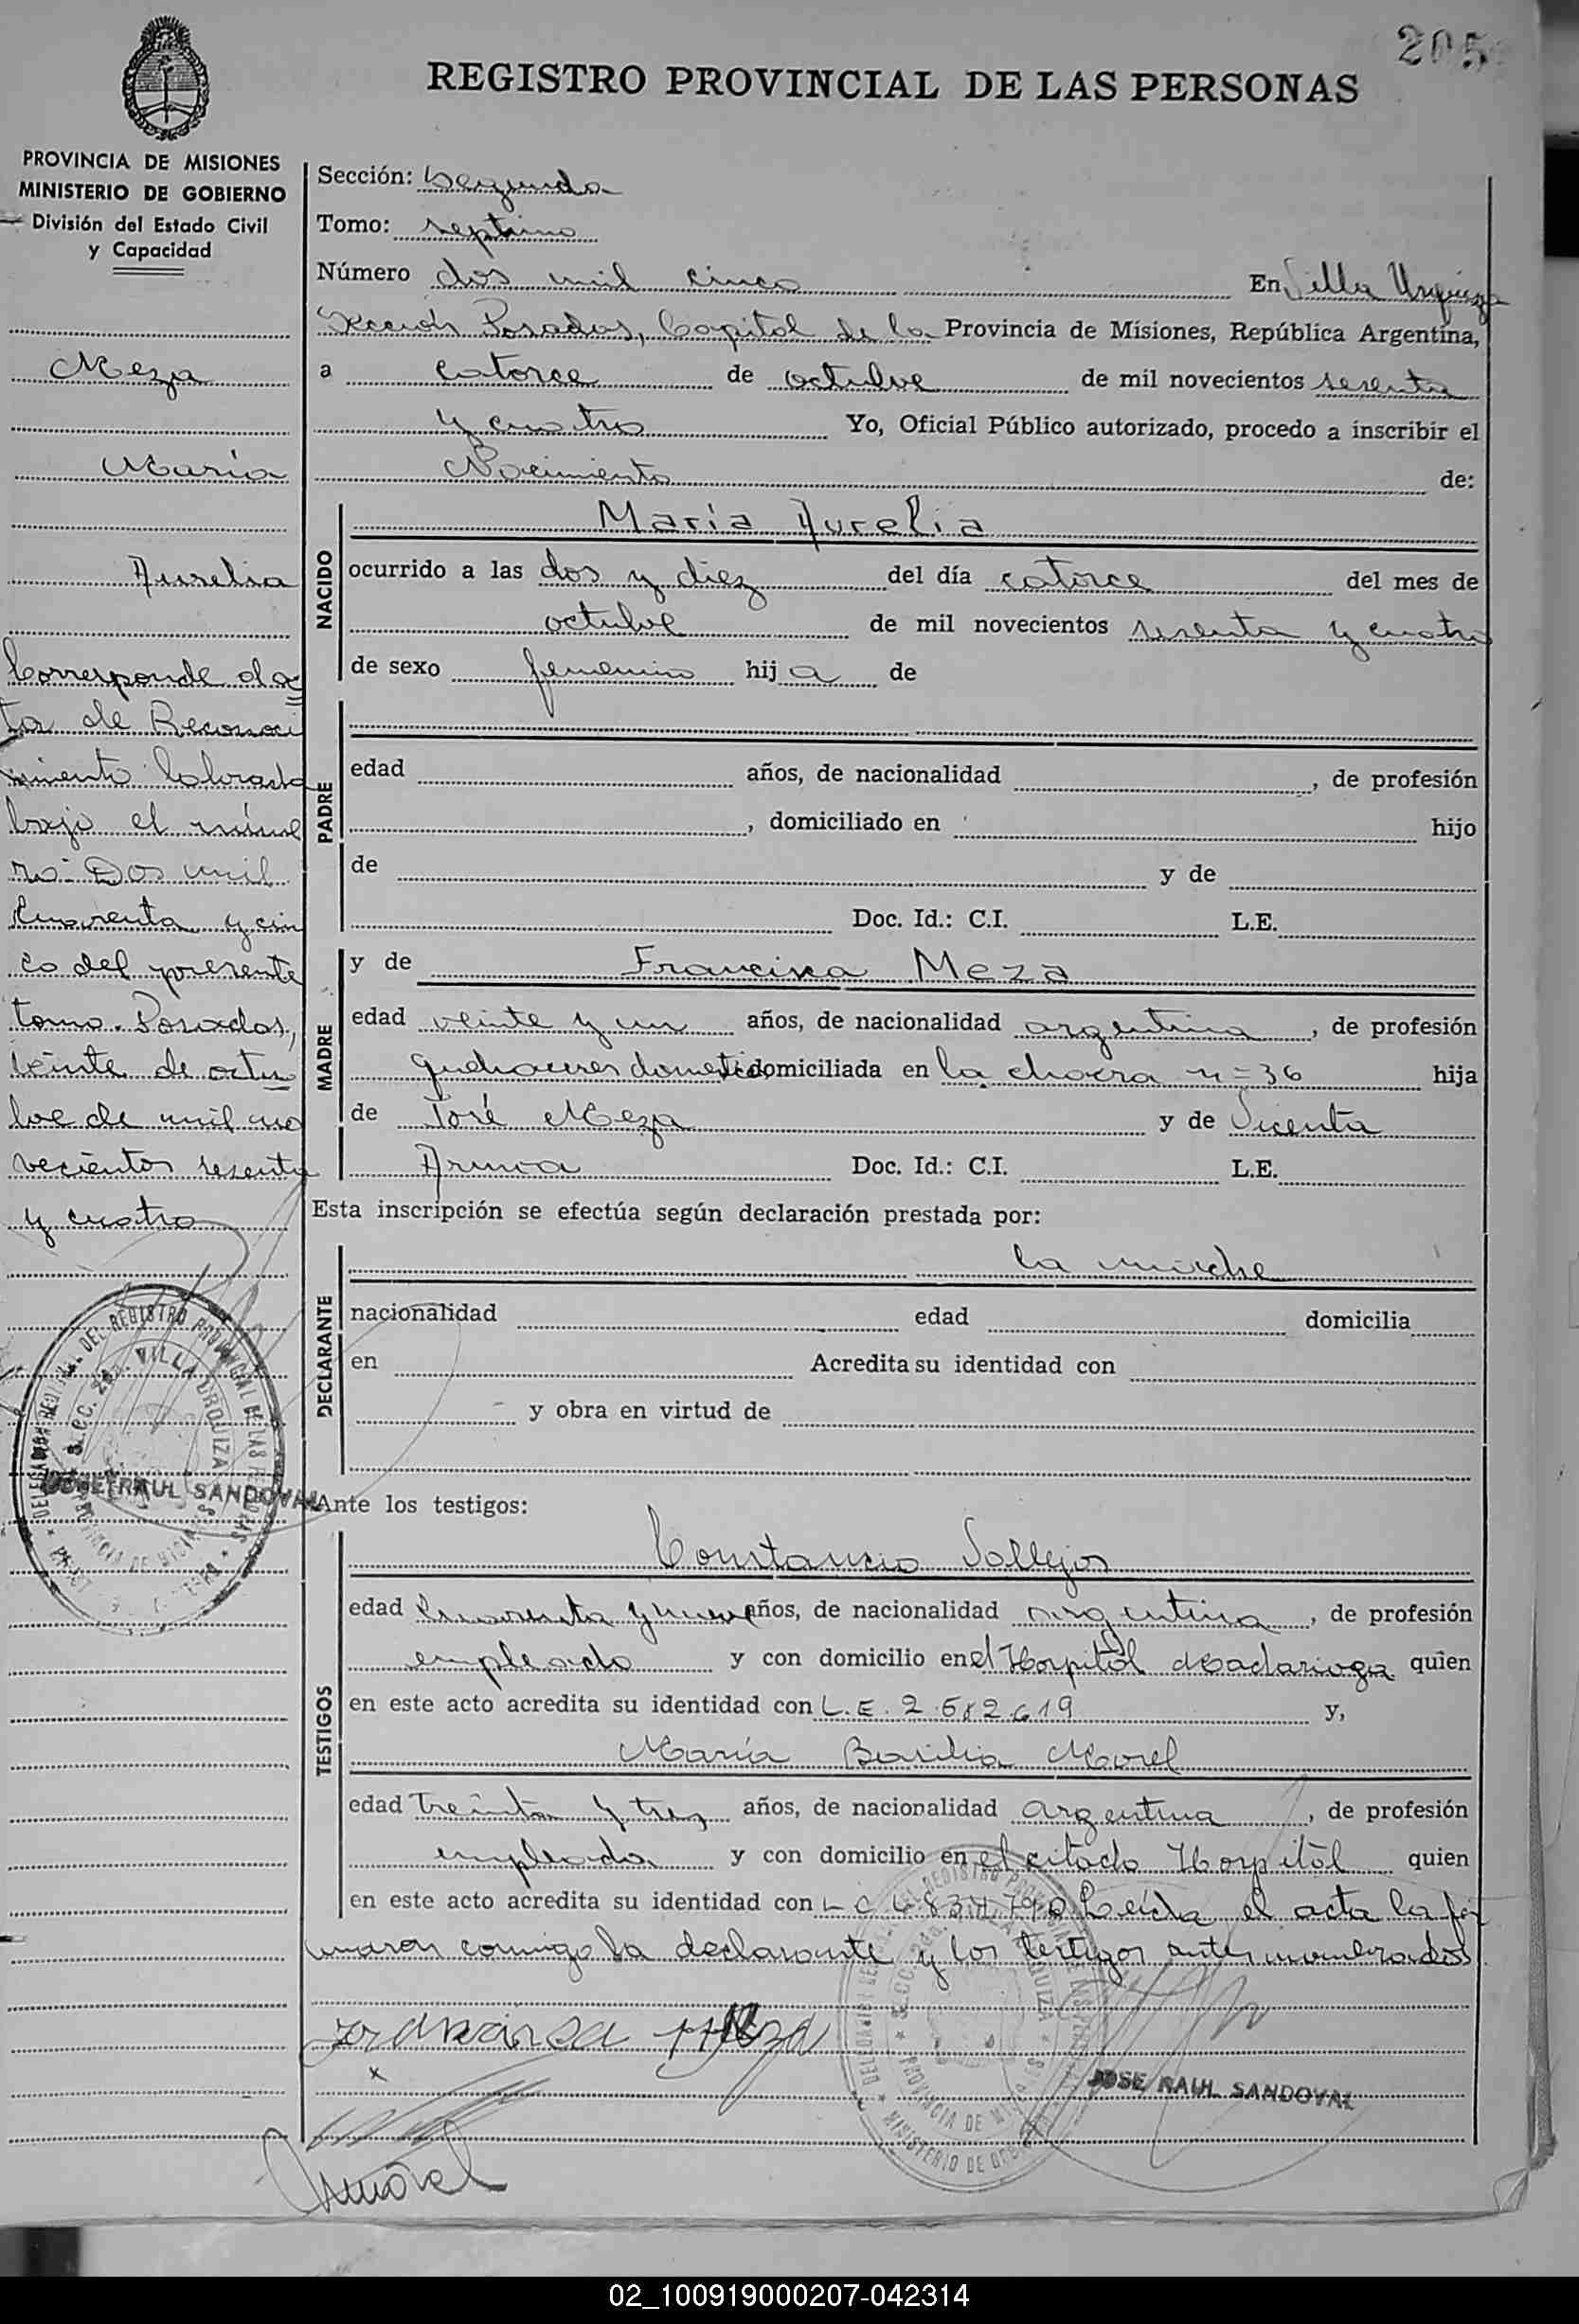 205
REGISTRO PROVINCIAL DE LAS PERSONAS
PROVINCIA DE MISIONES
MINISTERIO DE GOBIERNO
División del Estado Civil
y Capacidad
Meza
María
Aurelia
Corresponde al ac
ta de Reconoci
miento labrada
bajo el núme
ro: Dos mil
cuarenta y cin
co del presente
tomo. Posadas,
veinte de octu
bre de mil no
vecientos sesenta
y cuatro
JOSE RAUL SANDOVAL
Sección: Segunda
Tomo: septimo
Número dos mil cinco En Villa Urquiza
Sección Posadas, Capital de la Provincia de Misiones, República Argentina,
a catorce de octubre de mil novecientos sesenta
y cuatro Yo, Oficial Público autorizado, procedo a inscribir el
Nacimiento de:
NACIDO
María Aurelia
ocurrido a las dos y diez del día catorce del mes de
octubre de mil novecientos sesenta y cuatro
de sexo femenino hij a de
PADRE
edad años, de nacionalidad , de profesión
, domiciliado en hijo
de y de
Doc. Id.: C.I. L.E.
MADRE
y de Francisca Meza
edad veinte y un años, de nacionalidad argentina , de profesión
quehaceres domestic domiciliada en la chacra n= 36 hija
de José Meza y de Vicenta
Doc. Id.: C.I. L.E.
Esta inscripción se efectúa según declaración prestada por:
DECLARANTE
la madre
nacionalidad edad domicilia
en Acredita su identidad con
y obra en virtud de
Ante los testigos:
TESTIGOS
Constancio Vallejos
edad cuarenta y nueve años, de nacionalidad argentina , de profesión
empleado y con domicilio en el Hospital Madariaga quien
en este acto acredita su identidad con L.E. 2.582.619 y,
María Basilia Morel
edad Treinta y tres años, de nacionalidad argentina , de profesión
empleada y con domicilio en el citado Hospital quien
en este acto acredita su identidad con L C Leída el acta la fir
maron conmigo la declarante y los testigos antes nombrados
Francisca Meza
x
JOSE RAUL SANDOVAL
Morel
02_100919000207-042314